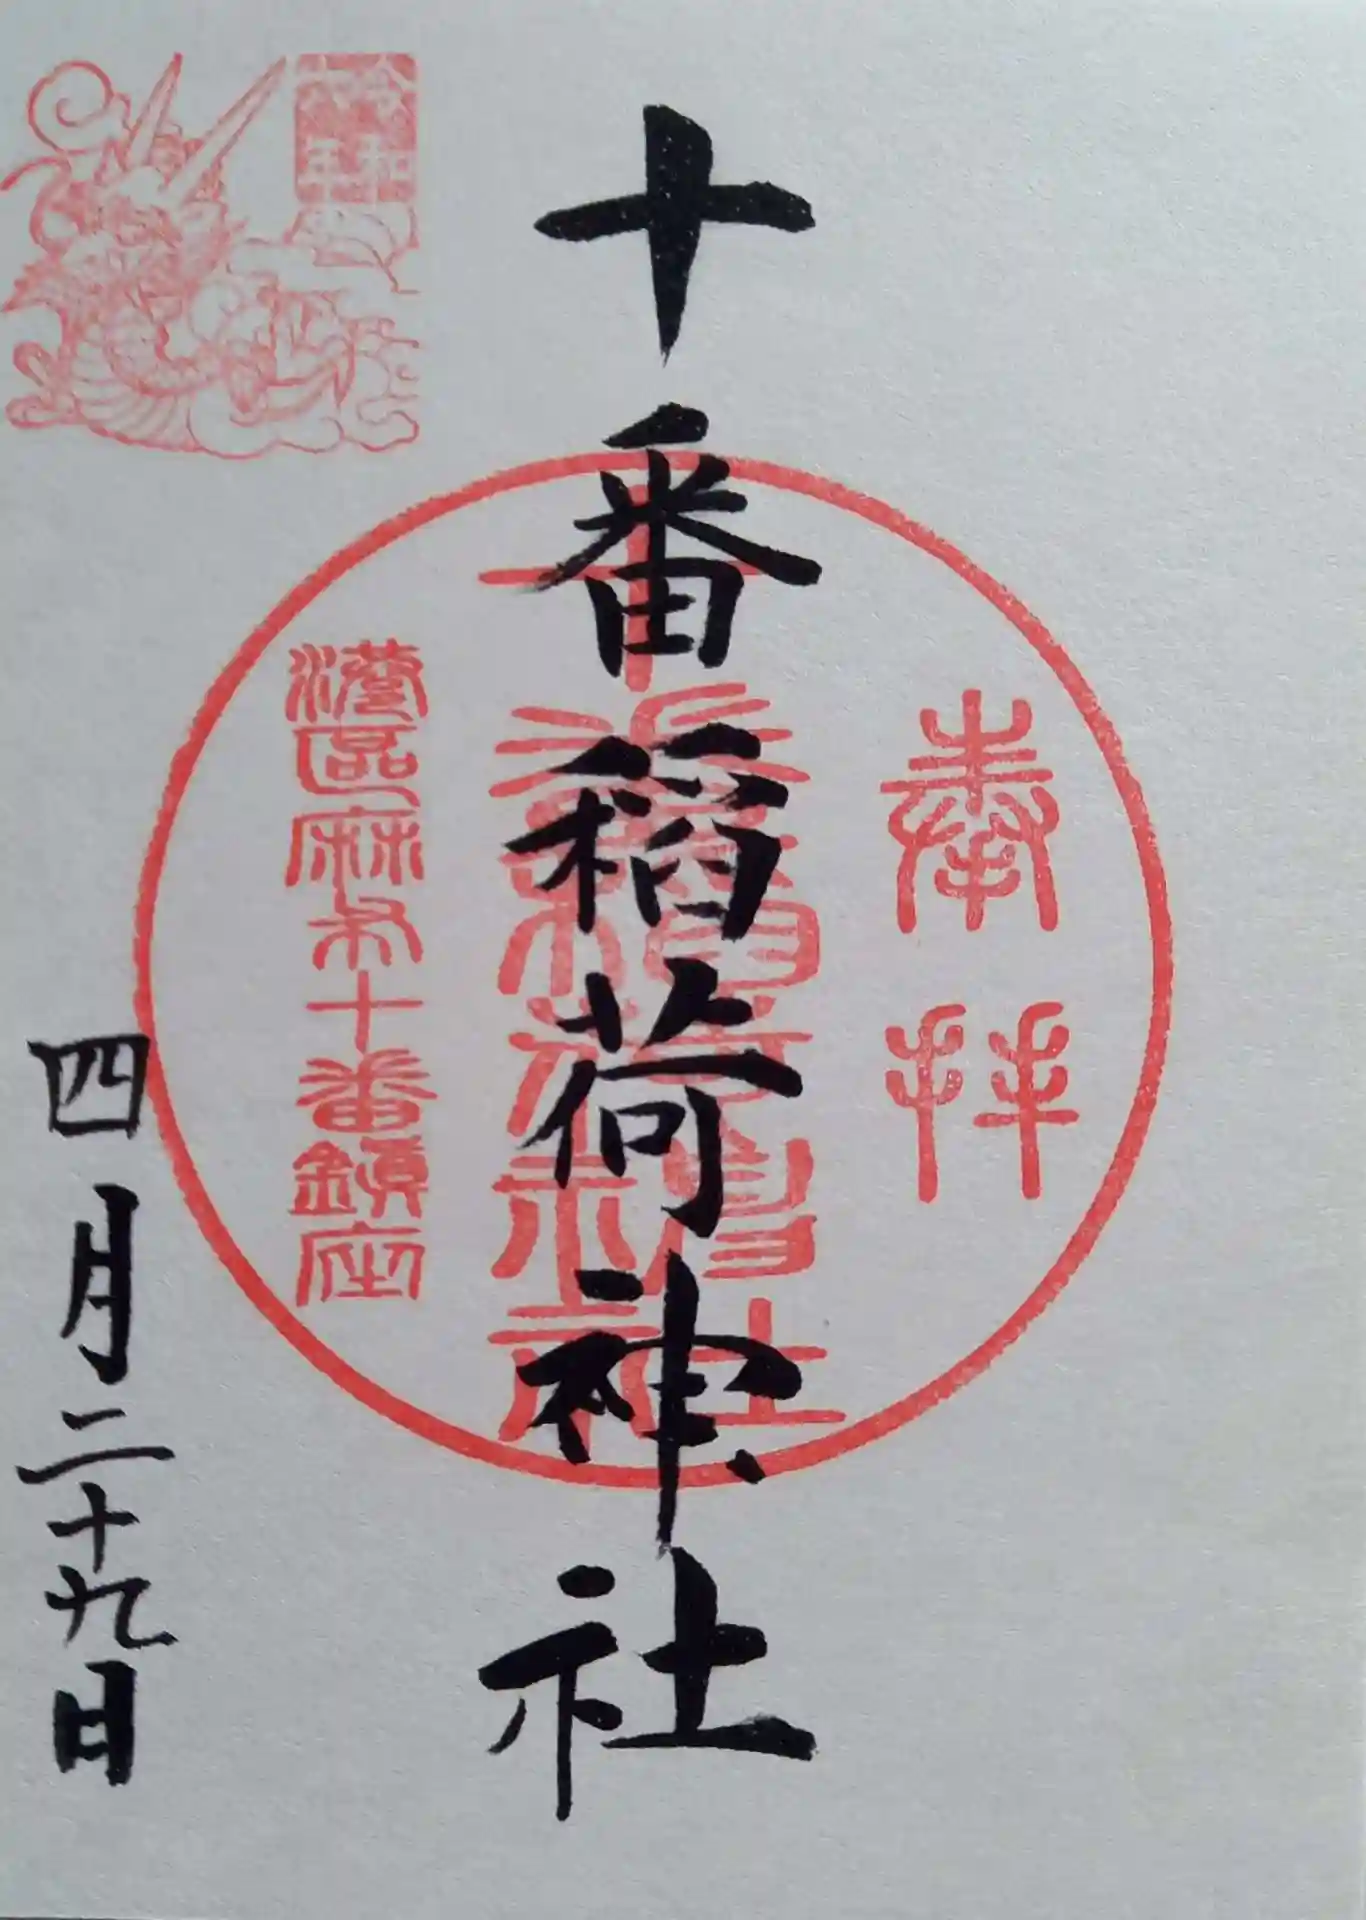 奉拝
十番稲荷神社
十番稲荷神社
港區麻布十番鎮座
令和六年
四月二十九日